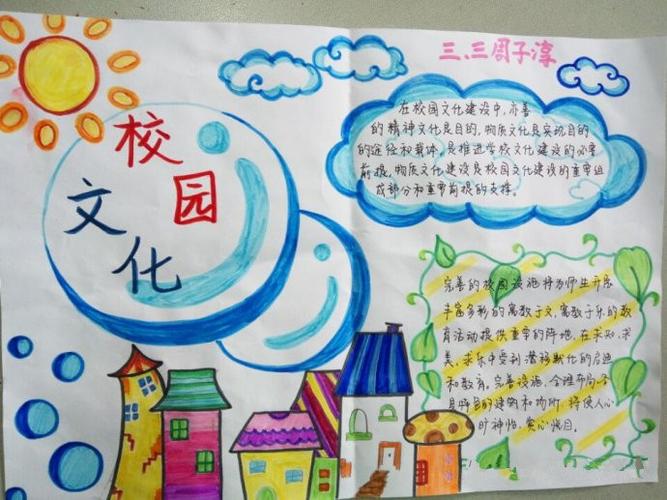 三、三周子淳
校园
文化
在校园文化建设中,亦善
的精神文化是目的,物质文化是实现目的
的途经和载体,是推进学校文化建设的必要
前提,物质文化建设是校园文化建设的重要组
成部分和重要前提的支撑。
完善的校园设施将为师生开展
丰富多彩的寓教于文,寓教于乐的教
育活动提供重要的阵地,在求知、求
美、求乐中受到潜移默化的启迪
和教育。完善设施、合理布局、各
具特色的建筑和场所,将使人心
旷神怡,赏心悦目。